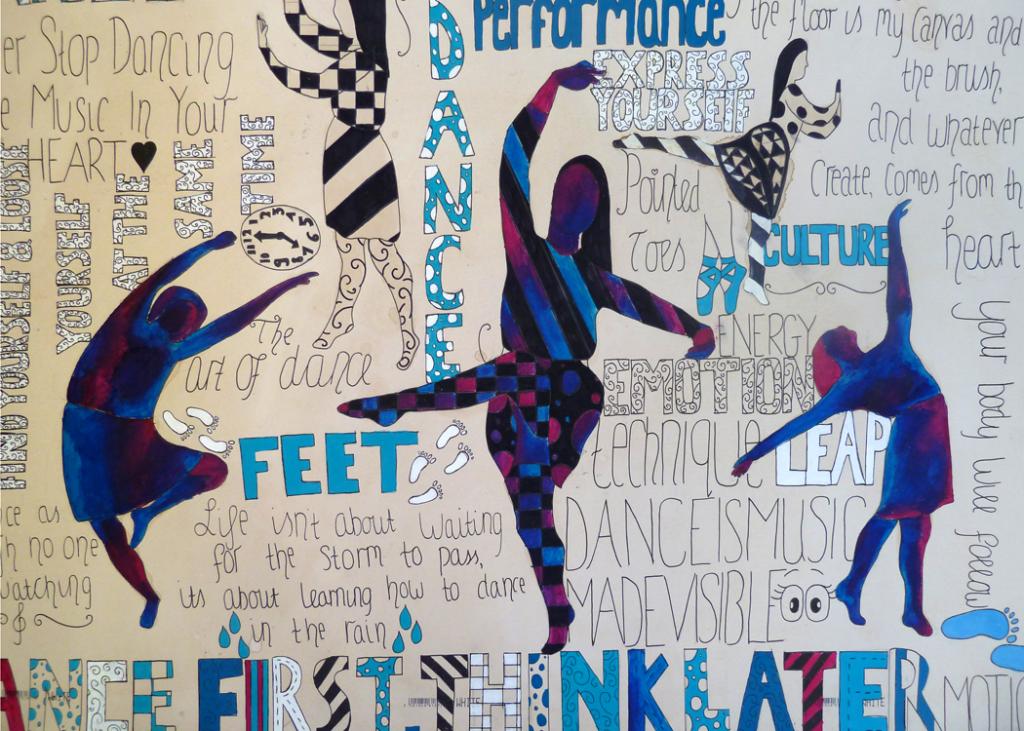 Performance
the floor is my canvas and
the brush,
and whatever
Create, comes from th
heart
your body will follow
er Stop Dancing
e Music In Your
HEART
DANCE
EXPRESS
YOURSELF
FIND YOURSELF & LOOSE
YOURSELF
AT THE
SAME
TIME
Pointed
Toes
CULTURE
The
art of dance
ENERGY
EMOTION
technique
LEAP
FEET
ce as
h no one
watching
Life isn't about waiting
for the storm to pass,
its about learning how to dance
in the rain
DANCE IS MUSIC
MADE VISIBLE
ANCE FIRST. THINK LATER
MOTIO